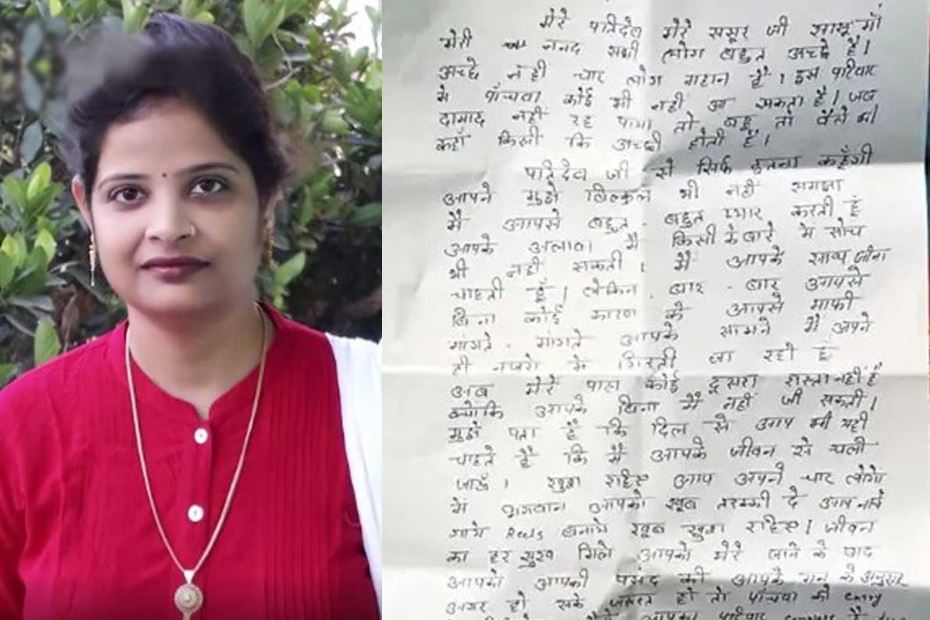 मेरे पतिदेव मेरे ससुर जी सासू माँ
मेरी ननद सभी लोग बहुत अच्छे हैं।
अच्छे नहीं चार लोग महान हैं। इस परिवार
मे पाँचवा कोई भी नहीं आ सकता है। जब
दामाद नहीं रह पाया तो बहू तो वैसे भी
कहाँ किसी कि अच्छी होती है।
पतिदेव जी से सिर्फ इतना कहूँगी
आपने मुझे बिल्कुल भी नहीं समझा
मैं आपसे बहुत - बहुत प्यार करती हूँ
आपके अलावा मैं किसी के बारे मे सोच
भी नहीं सकती। मैं आपके साथ जीना
चाहती हूँ। लेकिन बार - बार आपसे
बिना कोई कारण के आपसे माफी
मांगते - मांगते आपके सामने मैं अपने
ही नजरो मे गिरती जा रही हूं
अब मेरे पास कोई दूसरा रास्ता नहीं है
क्योंकि आपके बिना मैं नहीं जी सकती।
मुझे पता है कि दिल से आप भी यही
चाहते हैं कि मैं आपके जीवन से चली
जाऊँ। खुश रहिए आप अपने चार लोगो
में भगवान आपको खूब तरक्की दे आप नाचे
गाये Reels बनाये खूब खुश रहिए। जीवन
का हर सुख मिले आपको मेरे जाने के बाद
आपको आपकी पसंद की आपके मन के अनुसार
अगर हो सके जरूरत हो तो पाँचवा की entry
आपका परिवार